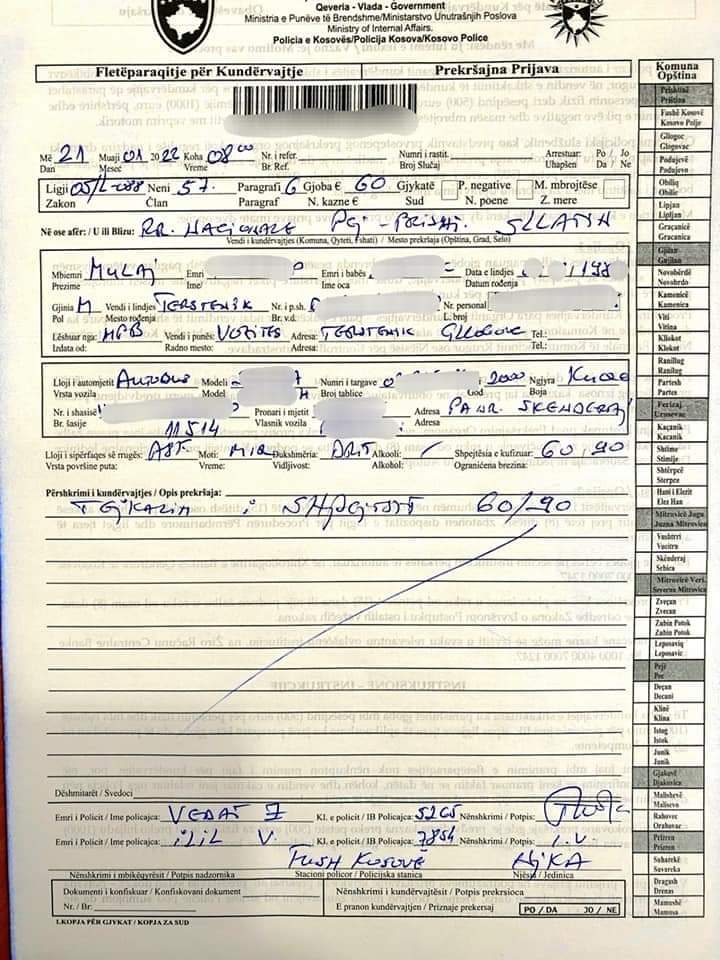 Qeveria - Vlada - Government
Ministria e Punëve të Brendshme/Ministarstvo Unutrašnjih Poslova
Ministry of Internal Affairs.
Policia e Kosovës/Policija Kosova/Kosovo Police
Fletëparaqitje për Kundërvajtje Prekršajna Prijava
Më 21 Muaji 01 2022 Koha 08:00 Nr. i refer. Numri i rastit. Arrestuar: Po / Jo
Dan Mesec Vreme Br. Ref. Broj Slučaj Uhapšen Da / Ne
Ligji 05/L-088 Neni 57. Paragrafi 6 Gjoba € 60 Gjykatë P. negative M. mbrojtëse
Zakon Član Paragraf N. kazne € Sud N. poene Z. mere
Në ose afër: / U ili Blizu: RR. NACIONALE PEJ - PRISHT. SLLATIN
Vendi i kundërvajtjes (Komuna, Qyteti, Fshati) / Mesto prekršaja (Opština, Grad, Selo)
Mbiemri MULAJ Emri Emri i babës Data e lindjes 198
Prezime Ime Ime oca Datum rođenja
Gjinia M Vendi i lindjes TERSTENIK Nr. i p.sh. Nr. personal
Pol Mesto rođenja Br. v.d. L. broj
Lëshuar nga: MPB Vendi i punës: VOZITES Adresa: TERSTENIK GLLOGOVC Tel.:
Izdata od: Radno mesto: Adresa: Tel.:
Lloji i automjetit AUTOBUS Modeli Numri i targave i 2000 Ngjyra KUQE
Vrsta vozila Model Broj tablice God Boja
Nr. i shasisë 11514 Pronari i mjetit Adresa PANR. SKENDERAJ
Br. šasije Vlasnik vozila Adresa
Lloji i sipërfaqes së rrugës: ASF. Moti: MIR Dukshmëria: DRIT Alkooli: / Shpejtësia e kufizuar: 60, 90
Vrsta površine puta: Vreme: Vidljivost: Alkohol: Ograničena brezina:
Përshkrimi i kundërvajtjes / Opis prekršaja:
TEJKALIM I SHPEJTSIS 60/90
Dëshmitarët / Svedoci
Emri i Policit / Ime policajca: VEDAT Z Kl. e policit / IB Policajca: 5265 Nënshkrimi / Potpis:
Emri i Policit / Ime policajca: ILIL V. Kl. e policit / IB Policajca: 7854 Nënshkrimi / Potpis: I.V.
FUSH KOSOVË NJKA
Nënshkrimi i mbikëqyrësit / Potpis nadzornika Stacioni policor / Policijska stanica Njësia / Jedinica
Dokumenti i konfiskuar / Konfiskovani dokument Nënshkrimi i kundërvajtësit / Potpis prekrsioca
Nr. / Br: E pranon kundërvajtjen / Priznaje prekersaj PO / DA JO / NE
1.KOPJA PËR GJYKAT / KOPJA ZA SUD
Komuna
Opština
Prishtinë
Priština
Fushë Kosovë
Kosovo Polje
Gllogoc
Glogovac
Podujevë
Podujevo
Obiliq
Obilic
Lipjan
Lipljan
Graçanicë
Gracanica
Gjilan
Gnjilan
Novobërdë
Novobrdo
Kamenicë
Kamenica
Viti
Vitina
Kllokot
Klokot
Ranillug
Ranilug
Partesh
Partes
Ferizaj
Urosevac
Kaçanik
Kacanik
Shtime
Stimlje
Shtërpcë
Sterpce
Hani i Elezit
Elez Han
Mitrovicë Jugu
Juzna Mitrovica
Vushtrri
Vucitrn
Skënderaj
Srbica
Mitrovicë Veri.
Severna Mitrovica
Zveçan
Zvecan
Zubin Potok
Zubin Potok
Leposaviq
Leposavic
Pejë
Pec
Deçan
Decani
Klinë
Klina
Istog
Istok
Junik
Junik
Gjakovë
Djakovica
Malishevë
Malisevo
Rahovec
Orahovac
Prizren
Prizren
Suharekë
Suvareka
Dragash
Drenas
Mamushë
Mamusa